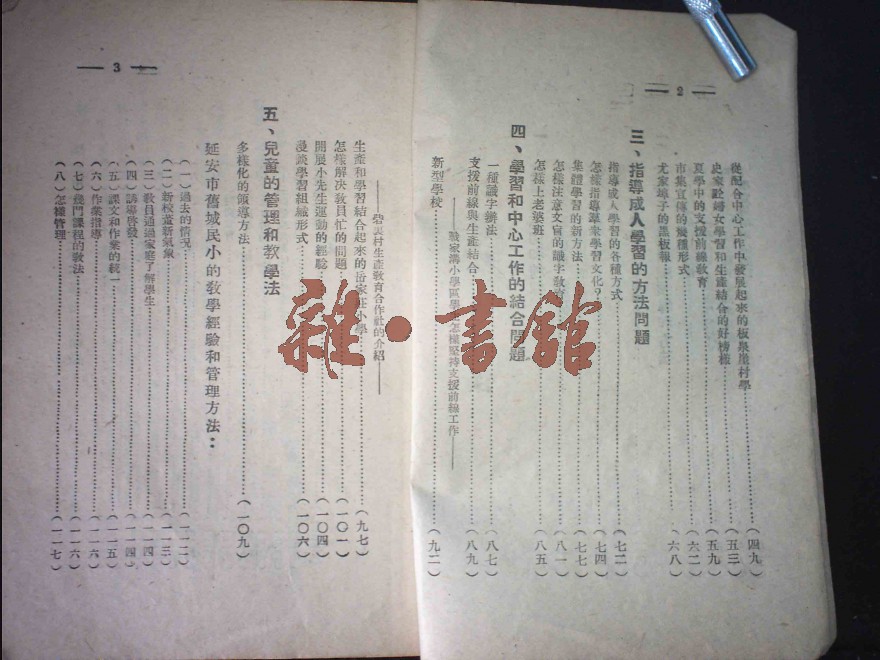 — 2 —
從配合中心工作中發展起來的板學崖村學……(四九)
史家趾婦女學習和生產結合的好榜樣……(五三)
夏學中的支援前線教育……(五九)
市集宣傳的幾種形式……(六二)
尤家塬子的黑板報……(六八)
三、指導成人學習的方法問題
指導成人學習的各種方式……(七二)
怎樣指導羣衆學習文化?……(七四)
集體學習的新方法……(七七)
怎樣注意文盲的識字教育……(八一)
怎樣上老婆班……(八五)
四、學習和中心工作的結合問題
一種識字辦法……(八七)
支援前線與生產結合……(八九)
小學區學 怎樣堅持支援前線工作——
新型學校……(九二)
— 3 —
——砦裏村生產教育合作社的介紹——
生產和學習結合起來的岳家莊小學……(九七)
怎樣解決教員忙的問題……(一〇一)
開展小先生運動的經驗……(一〇四)
漫談學習組織形式……(一〇六)
五、兒童的管理和教學法
多樣化的領導方法……(一〇九)
延安市舊城民小的教學經驗和管理方法:
(一)過去的情況……(一一二)
(二)新校董新氣象……(一一三)
(三)教員通過家庭了解學生……(一一四)
(四)誘導啓發……(一一四)
(五)課文和作業的統一……(一一五)
(六)作業指導……(一一六)
(七)幾門課程的教法……(一一六)
(八)怎樣管理……(一一七)
雜·書館